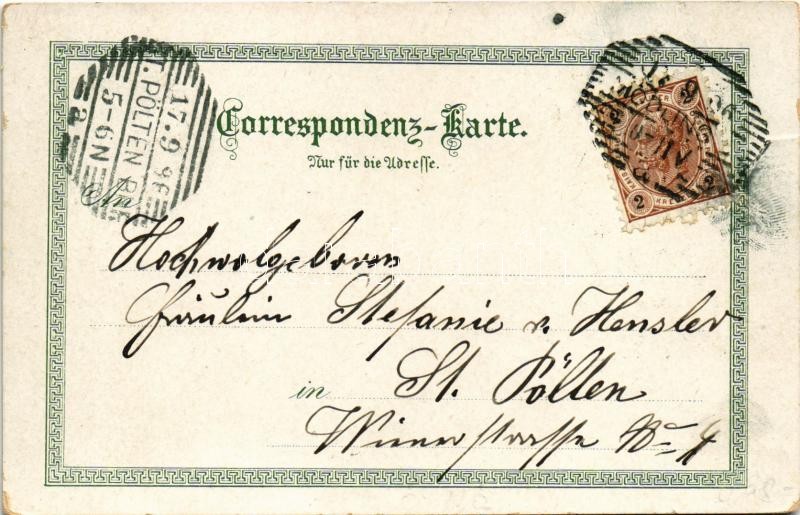 17.9.96
ST. PÖLTEN
5-6N
a
Correspondenz-Karte.
Nur für die Adresse.
2 KREUZER 2
An
Hochwolgeboren
Fräulein Stefanie v. Hensler
in St. Pölten
Wienerstrasse No 4